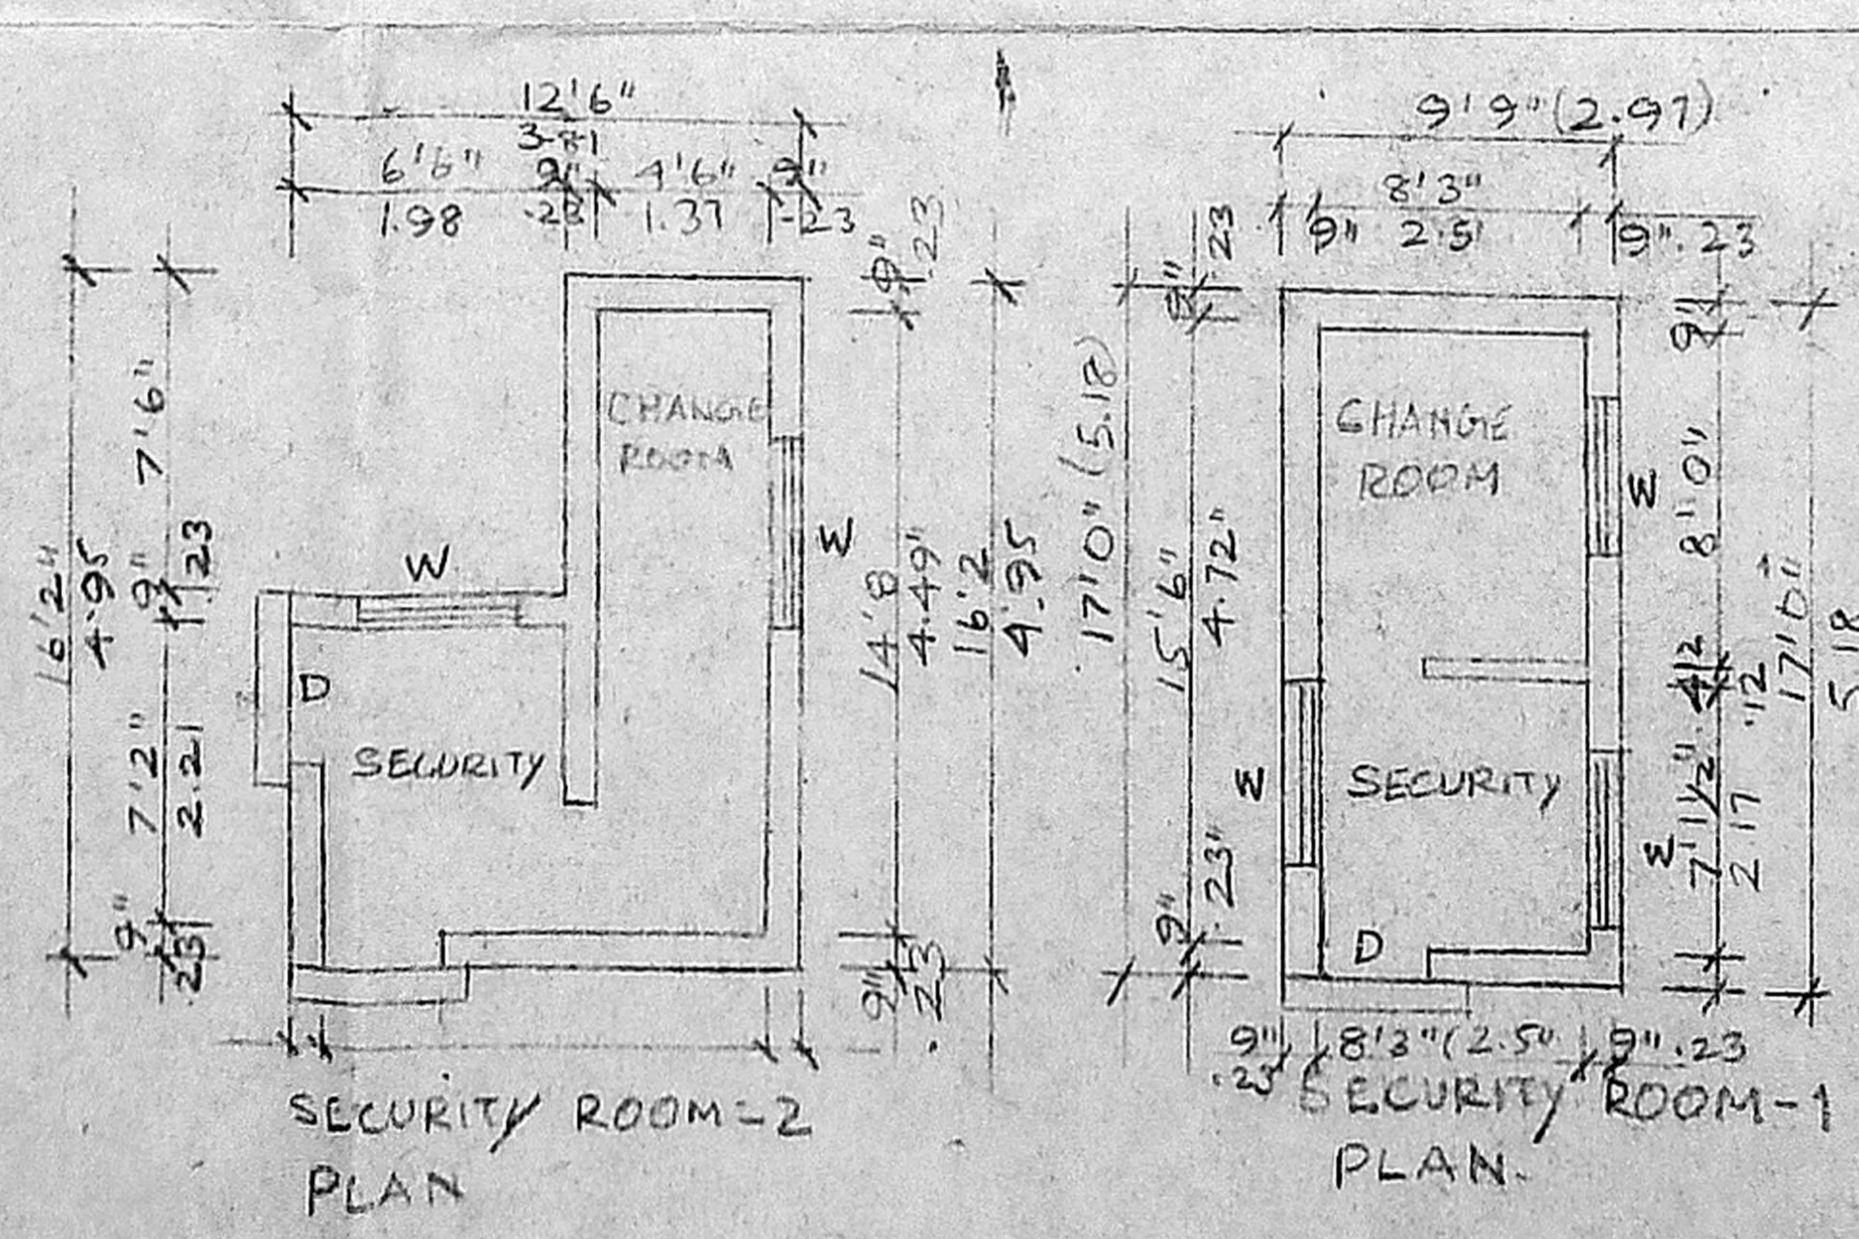 12'6"
3.81
6'6" 9" 4'6" 9"
1.98 .23 1.37 .23
9" .23
16'2"
4.95
7'6"
9" .23
7'2"
2.21
9" .23
CHANGE
ROOM
W
W
D
SECURITY
14'8
4.49'
16'2
4.95
9" .23
SECURITY ROOM-2
PLAN
9'9"(2.97)
8'3"
9" 2.51 9" .23
9" .23
17'0" (5.18)
15'6"
4.72"
9" .23"
CHANGE
ROOM
W
W
W
SECURITY
D
9"
8'0"
4½
.12
7'1½"
2.17
17'0"
5.18
9" 8'3"(2.50 9" .23
.23
SECURITY ROOM-1
PLAN.